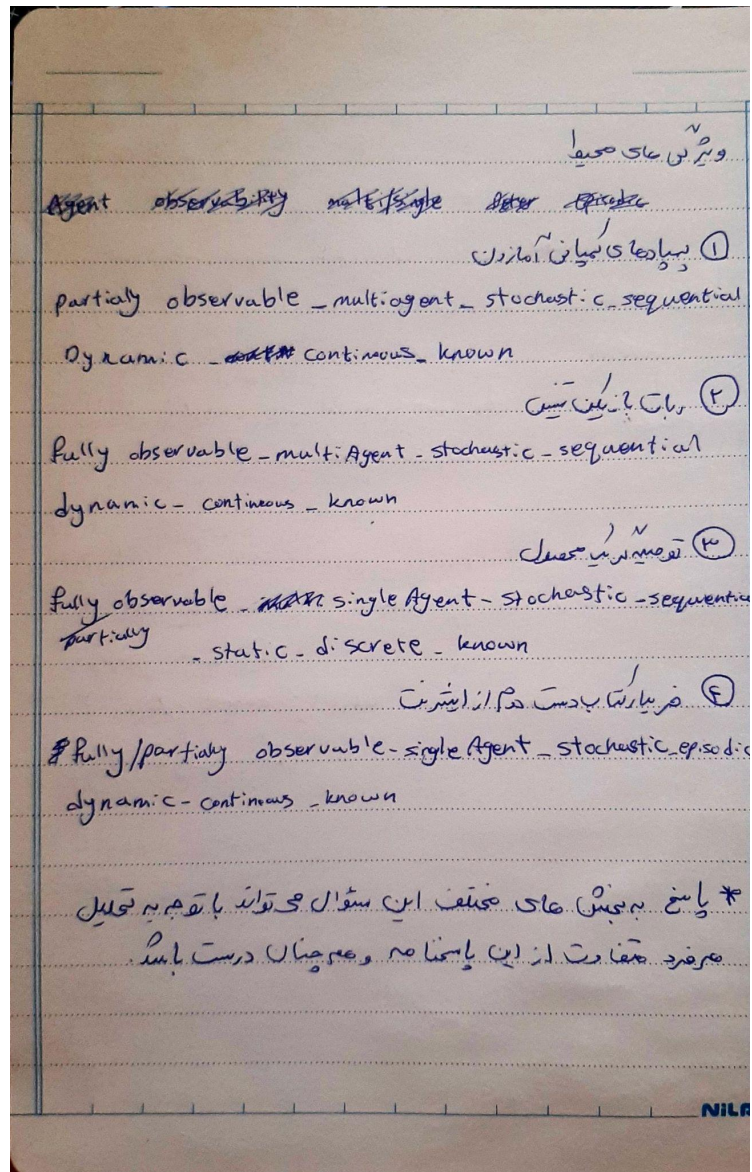 ویژگی های محیط
Agent observability multi/single Deter Episodic
① پهپادهای کمپانی آمازون
partialy observable _ multiagent _ stochastic _ sequential
Dynamic _ continuous _ known
② ربات بازیکن تنیس
fully observable _ multiAgent _ stochastic _ sequential
dynamic _ continuous _ known
③ توصیه گر یک محصول
fully observable _ single Agent _ stochastic _ sequentia
partially _ static _ discrete _ known
④ خریدار کتاب دست دوم از اینترنت
fully/partialy observable _ single Agent _ stochastic _ episodic
dynamic _ continuous _ known
* پاسخ به بخش های مختلف این سؤال می تواند با توجه به تحلیل
هر فرد متفاوت از این پاسخنامه و همچنان درست باشد.
NILP